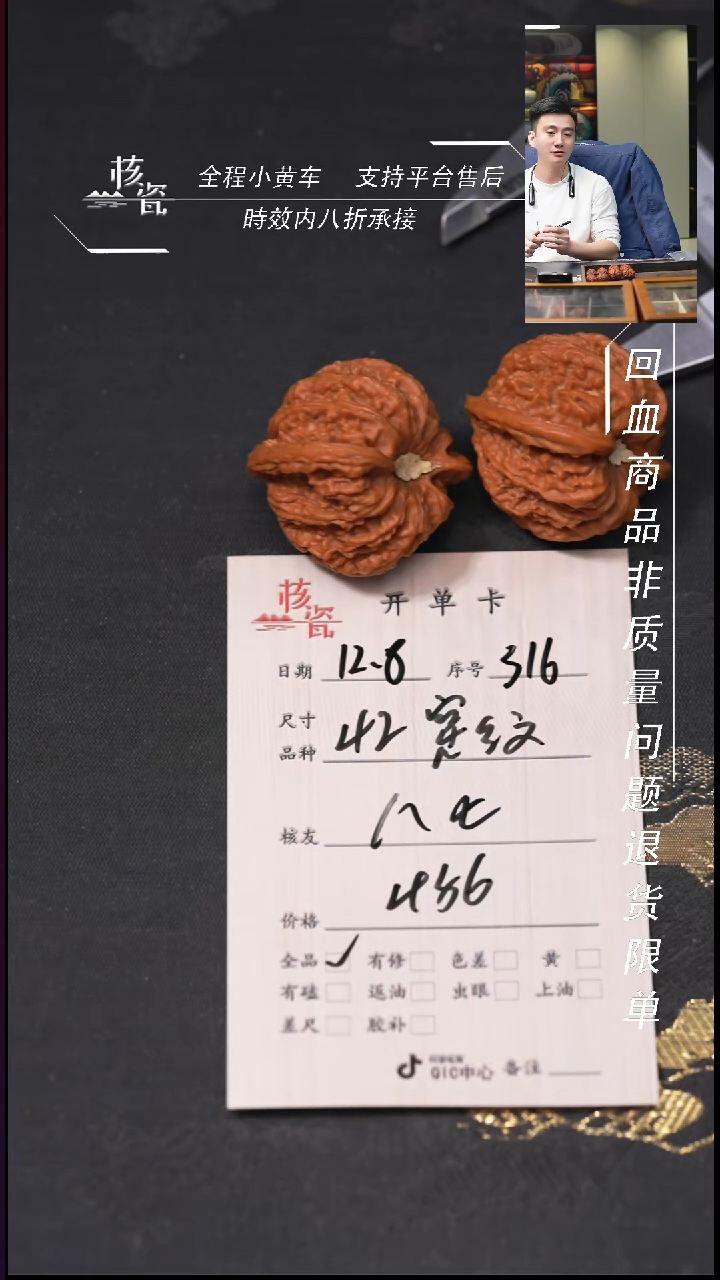 核瓷
全程小黄车 支持平台售后
時效内八折承接
回血商品非质量问题退货限单
核瓷
开单卡
日期 12.8 序号 316
尺寸
品种 42 宽纹
核友 八七
价格 456
全品 ✓ 有修 色差 黄
有磕 返油 虫眼 上油
差尺 胶补
QIC中心 备注